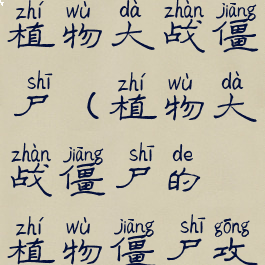 zhí wù dà zhàn jiāng
植物大战僵
shī zhí wù dà
尸（植物大
zhàn jiāng shī de
战僵尸的
zhí wù jiāng shī gōng
植物僵尸攻